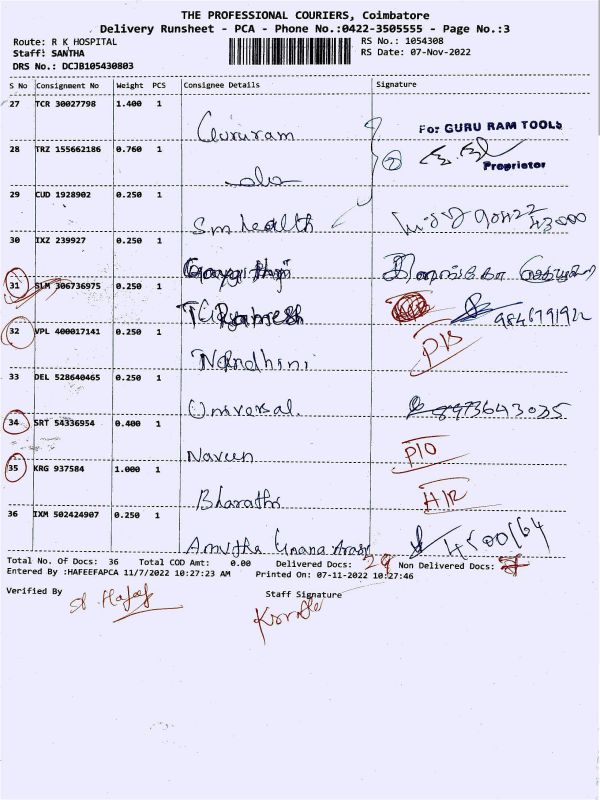 THE PROFESSIONAL COURIERS, Coimbatore
Delivery Runsheet - PCA - Phone No.:0422-3505555 - Page No.:3
Route: R K HOSPITAL
RS No.: 1054308
Staff: SANTHA
RS Date: 07-Nov-2022
DRS No.: DCJB105430803
S No Consignment No Weight PCS Consignee Details Signature
27 TCR 30027798 1.400 1 Gururam
For GURU RAM TOOLS
28 TRZ 155662186 0.760 1
Proprietor
29 CUD 1928902 0.250 1 Sm health
30 IXZ 239927 0.250 1
31 SLM 306736975 0.250 1 9846791922
32 VPL 400017141 0.250 1 Nandhini
33 DEL 528640465 0.250 1 Universal. 8973643035
34 SRT 54336954 0.400 1 Naveen
35 KRG 937584 1.000 1 Bharathi
36 IXM 502424907 0.250 1
Total No. Of Docs: 36 Total COD Amt: 0.00 Delivered Docs: 29 Non Delivered Docs:
Entered By :HAFEEFAPCA 11/7/2022 10:27:23 AM Printed On: 07-11-2022 10:27:46
Verified By
Staff Signature